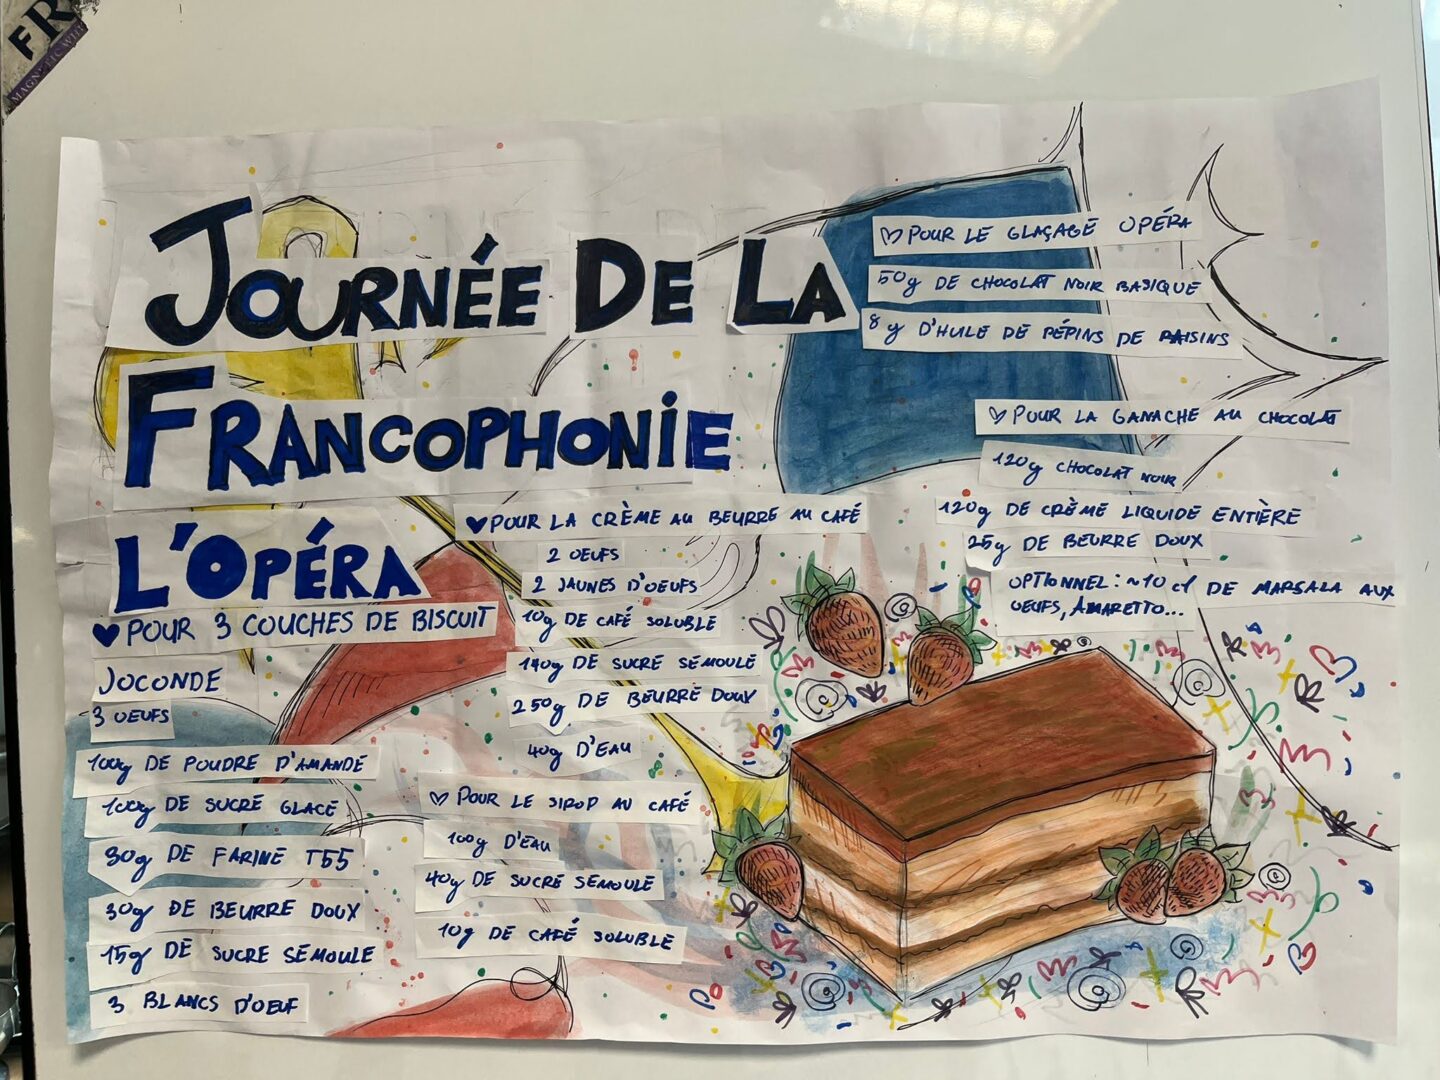 FR
JOURNÉE DE LA
FRANCOPHONIE
L'OPÉRA
POUR 3 COUCHES DE BISCUIT
JOCONDE
3 OEUFS
100g DE POUDRE D'AMANDE
100g DE SUCRE GLACE
30g DE FARINE T55
30g DE BEURRE DOUX
15g DE SUCRE SEMOULE
3 BLANCS D'OEUF
POUR LA CRÈME AU BEURRE AU CAFÉ
2 OEUFS
2 JAUNES D'OEUFS
10g DE CAFÉ SOLUBLE
140g DE SUCRE SEMOULE
250g DE BEURRE DOUX
40g D'EAU
POUR LE SIROP AU CAFÉ
100g D'EAU
40g DE SUCRE SEMOULE
10g DE CAFÉ SOLUBLE
POUR LE GLAÇAGE OPÉRA
50g DE CHOCOLAT NOIR BASIQUE
8g D'HUILE DE PÉPINS DE RAISINS
POUR LA GANACHE AU CHOCOLAT
120g CHOCOLAT NOIR
120g DE CRÈME LIQUIDE ENTIÈRE
25g DE BEURRE DOUX
OPTIONNEL : ~10 cl DE MARSALA AUX
OEUFS, AMARETTO...